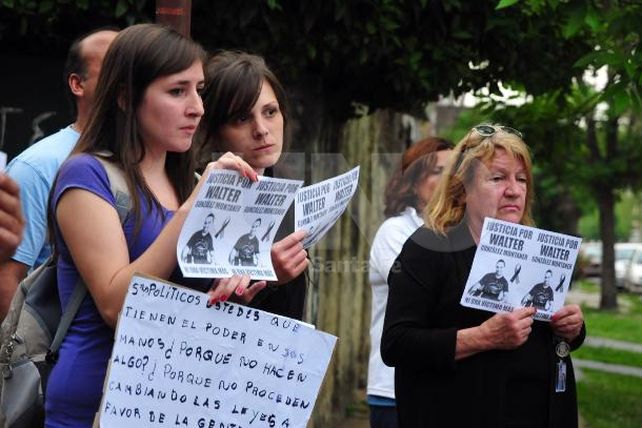 JUSTICIA POR
WALTER
GONZALEZ MONTANEZ
JUSTICIA POR
WALTER
GONZALEZ MONTANEZ
JUSTICIA POR
WALTER
GONZALEZ MONTANEZ
NI UNA VICTIMA MAS
JUSTICIA POR
WALTER
GONZALEZ MONTANEZ
POLITICOS USTEDES QUE
TIENEN EL PODER EN SUS
MANOS ¿ PORQUE NO HACEN
ALGO? ¿ PORQUE NO PROCEDEN
CAMBIANDO LAS LEYES A
FAVOR DE LA
Santa Fe